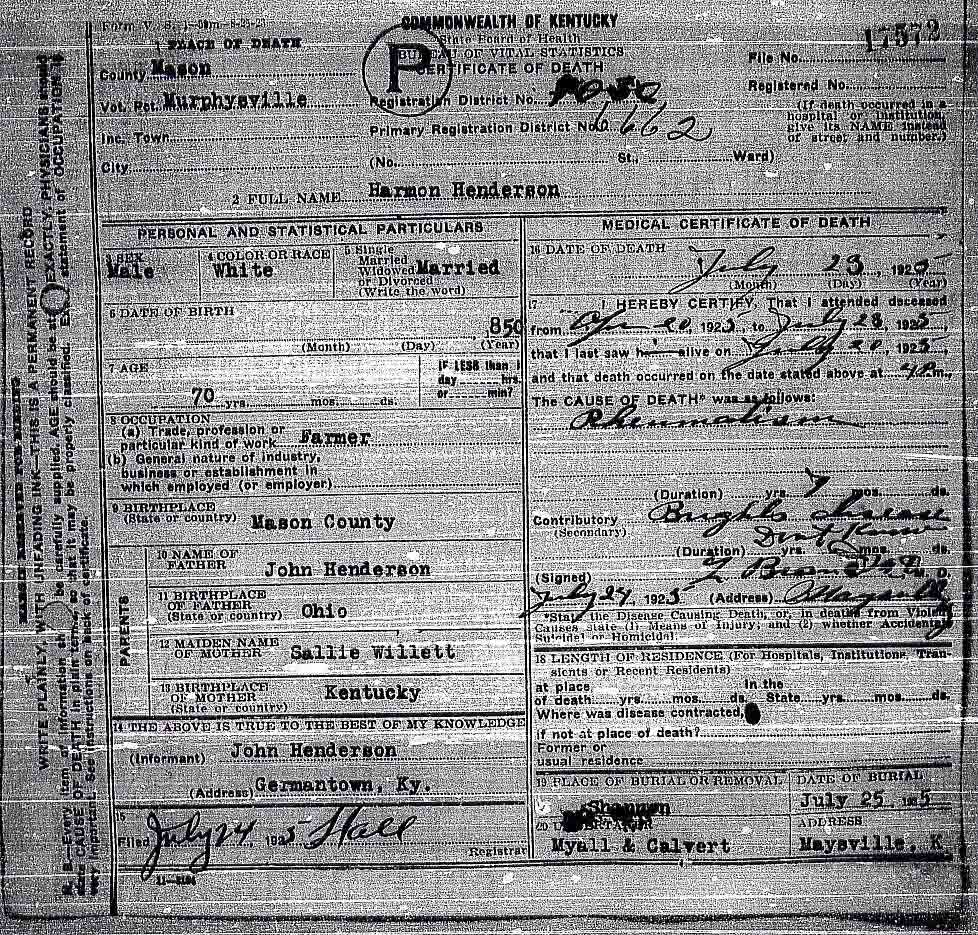 Form V. S. 1-
COMMONWEALTH OF KENTUCKY
State Board of Health
BUREAU OF VITAL STATISTICS
CERTIFICATE OF DEATH
P
1 PLACE OF DEATH
County Mason
Vot. Pct. Murphysville
Inc. Town
City
File No. 17572
Registered No.
(If death occurred in a
hospital or institution,
give its NAME instead
of street and number.)
Registration District No.
Primary Registration District No. 6662
(No. St., Ward)
2 FULL NAME Harmon Henderson
PERSONAL AND STATISTICAL PARTICULARS
3 SEX Male
4 COLOR OR RACE White
5 Single
Married
Widowed
or Divorced
(Write the word)
Married
6 DATE OF BIRTH
850
(Month) (Day) (Year)
7 AGE
70 yrs. mos. ds.
IF LESS than 1
day hrs.
or min?
8 OCCUPATION
(a) Trade, profession or
particular kind of work Farmer
(b) General nature of industry,
business or establishment in
which employed (or employer)
9 BIRTHPLACE
(State or country) Mason County
PARENTS
10 NAME OF
FATHER John Henderson
11 BIRTHPLACE
OF FATHER
(State or country) Ohio
12 MAIDEN NAME
OF MOTHER Sallie Willett
13 BIRTHPLACE
OF MOTHER
(State or country) Kentucky
14 THE ABOVE IS TRUE TO THE BEST OF MY KNOWLEDGE
(Informant) John Henderson
(Address) Germantown, Ky.
15
Filed July 24, 1925 Hall
Registrar
MEDICAL CERTIFICATE OF DEATH
16 DATE OF DEATH
July 23, 1925
(Month) (Day) (Year)
17 I HEREBY CERTIFY, That I attended deceased
from Apr 20, 1925, to July 23, 1925,
that I last saw h alive on July 20, 1925,
and that death occurred on the date stated above at 4 P.m.
The CAUSE OF DEATH* was as follows:
Rheumatism
(Duration) yrs. mos. ds.
Contributory Brights disease
(Secondary) Dont Know
(Duration) yrs. mos. ds.
(Signed) M. D.
July 24, 1925 (Address) Maysville
*State the Disease Causing Death, or, in deaths from Violent
Causes state (1) Means of Injury; and (2) whether Accidental,
Suicidal or Homicidal.
18 LENGTH OF RESIDENCE (For Hospitals, Institutions, Tran-
sients or Recent Residents)
at place In the
of death yrs. mos. ds. State yrs. mos. ds.
Where was disease contracted,
if not at place of death?
Former or
usual residence
19 PLACE OF BURIAL OR REMOVAL
Shannon
DATE OF BURIAL
July 25 1925
20 UNDERTAKER
Myall & Calvert
ADDRESS
Maysville, K
WRITE PLAINLY, WITH UNFADING INK—THIS IS A PERMANENT RECORD
N. B.—Every item of information should be carefully supplied. AGE should be stated EXACTLY. PHYSICIANS should
state CAUSE OF DEATH in plain terms, so that it may be properly classified. Exact statement of OCCUPATION is
very important. See instructions on back of certificate.